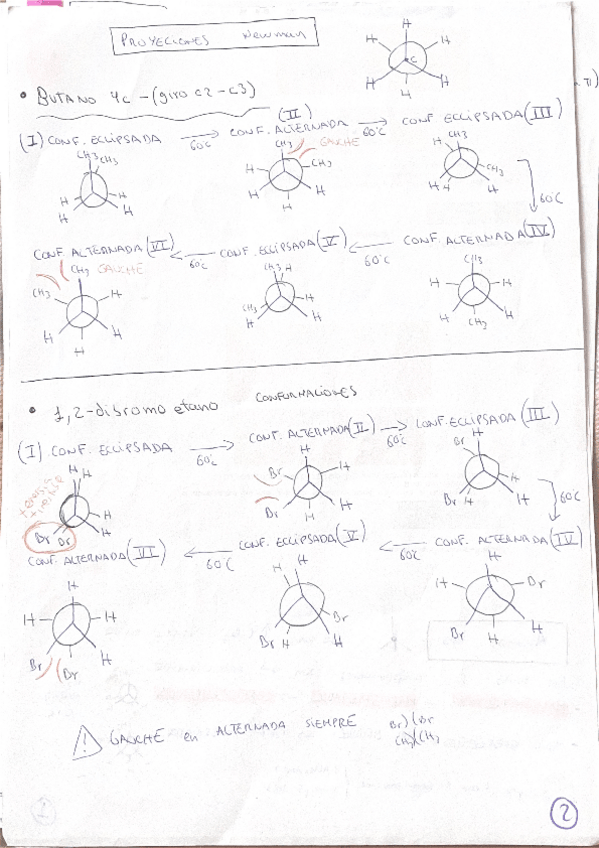 PROYECIONES Newman
H
H H
C
H H
H
• BUTANO 4C - (giro C2 - C3)
(I) CONF. ECLIPSADA → 60°C (II) CONF. ALTERNADA → 60°C CONF ECLIPSADA (III)
CH3 CH3
H H
H H
CH3 GAUCHE
H CH3
H H
H
CH3
H
CH3
H H H
60°C
CONF. ALTERNADA (VI) ← 60°C CONF. ECLIPSADA (V) ← 60°C CONF. ALTERNADA (IV)
CH3 GAUCHE
CH3 H
H H
H
CH3 H
H
CH3
H H
CH3
H H
H H
CH3
• 1,2-dibromo etano CONFORMACIONES
(I) CONF. ECLIPSADA → 60°C CONF. ALTERNADA (II) → 60°C CONF. ECLIPSADA (III)
H H
H
Br Br H
H
Br H
Br H
H
H
Br
H
Br H H
60°C
CONF. ALTERNADA (VI) ← 60°C CONF. ECLIPSADA (V) ← 60°C CONF. ALTERNADA (IV)
H
H H
Br H
Br
H H
Br
Br H H
H
H Br
Br H
H
! GAUCHE en ALTERNADA SIEMPRE Br)(Br
CH3)(CH3
2